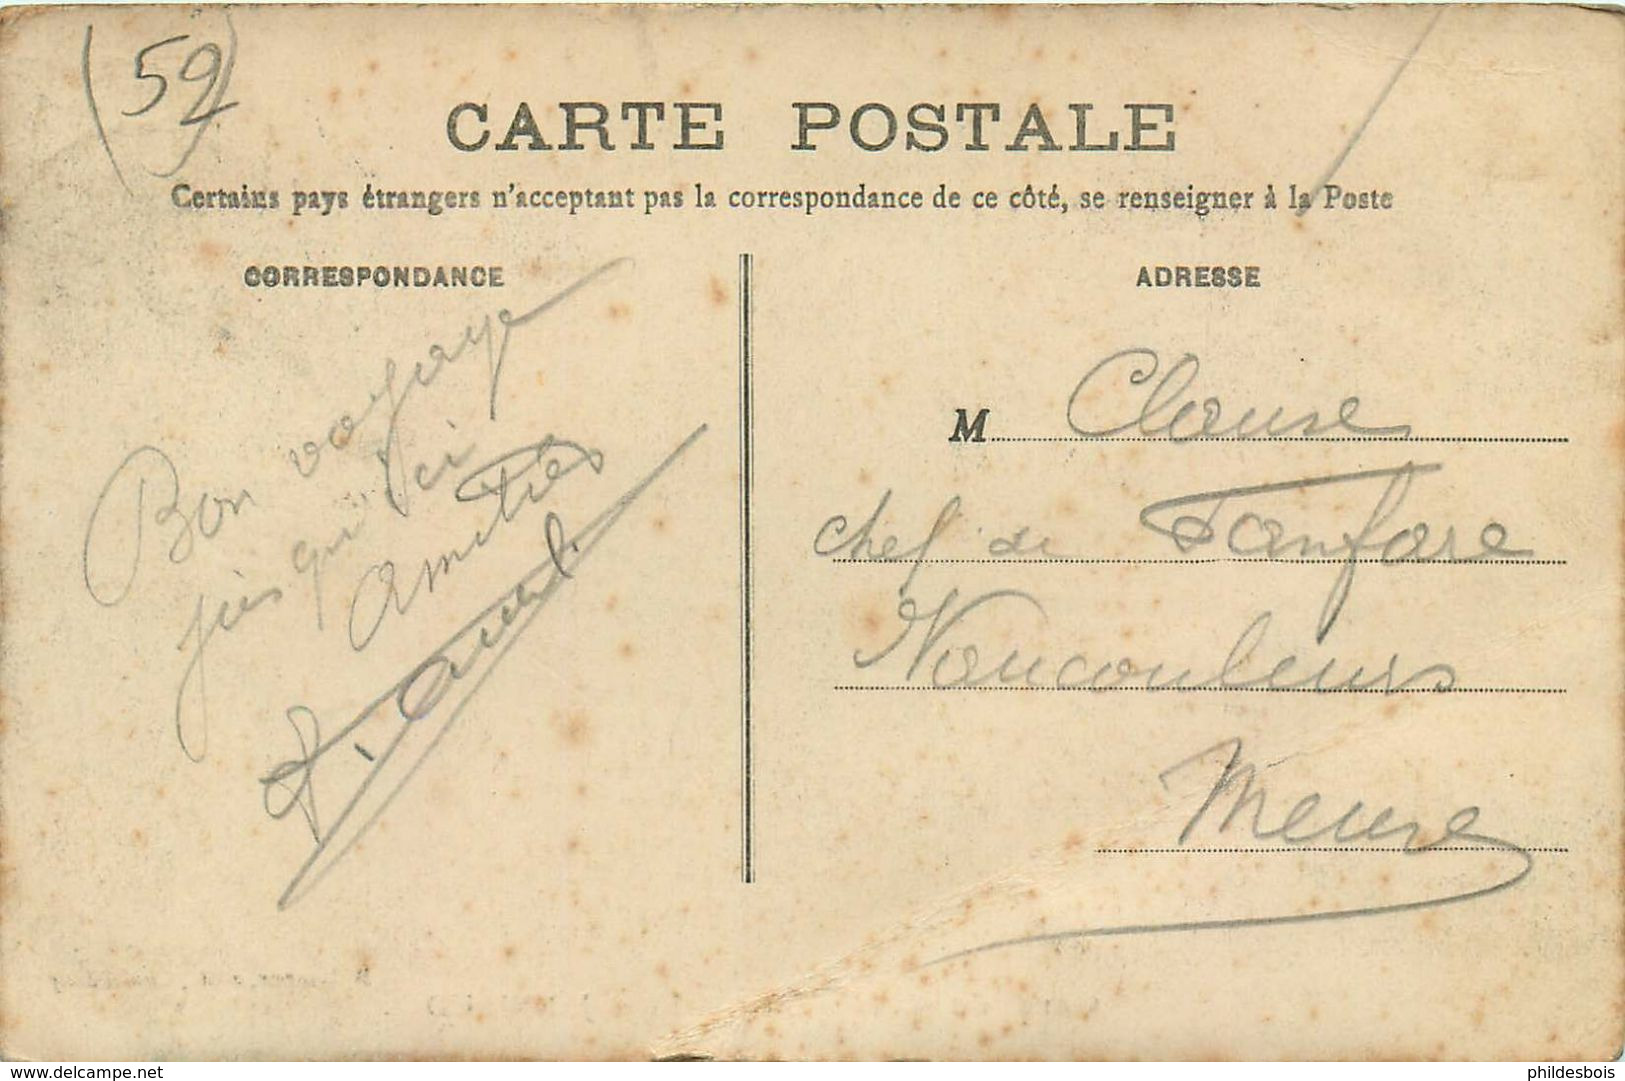 (59)
CARTE POSTALE
Certains pays étrangers n'acceptant pas la correspondance de ce côté, se renseigner à la Poste
CORRESPONDANCE
ADRESSE
Bon voyage
jusqu'ici
Amitiés
M Clause
chef de Fanfare
Vaucouleurs
Meuse
www.delcampe.net
phildesbois